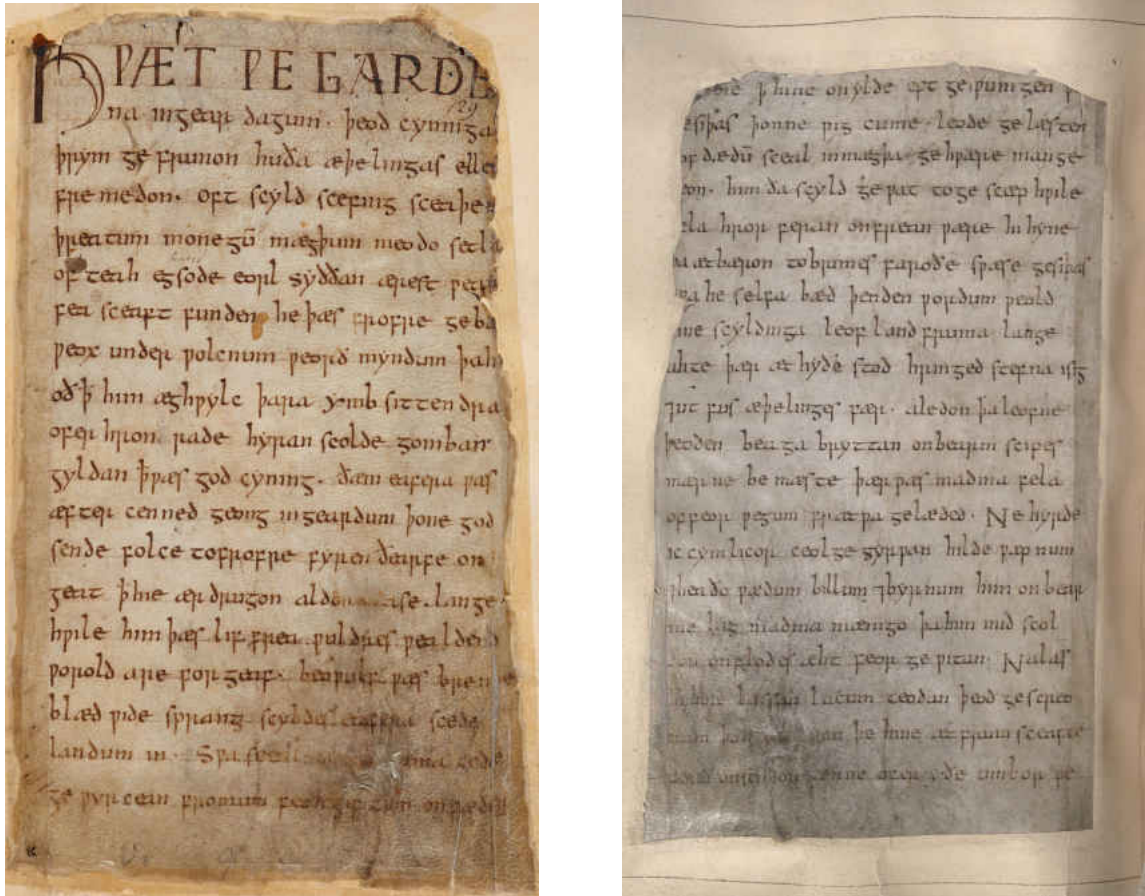 HǷÆT ǷE GARDE
129
na ingear dagum. þeod cyninga
þrym ge frunon huða æþelingas elle
fre medon. oft scyld scefing sceaþe
þreatum monegū mægþum meodo setla
of teah egsode eorl syððan ærest ƿear
fea sceaft funden he þæs frofre geba
ƿeox under ƿolcnum ƿeorð myndum þah
oð ꝥ him æghƿylc þara ymb sittendra
ofer hron rade hyran scolde gomban
gyldan ꝥ ƿæs god cyning. ðæm eafera ƿæs
æfter cenned geong ingeardum þone god
sende folce tofrofre fyren ðearfe on
geat ꝥ hie ær drugon aldor ase. lange
hƿile him þæs lif frea ƿuldres ƿealdend
ƿorold are for geaf. beoƿulf ƿæs breme
blæd ƿide sprang scyldes eafera scede
landum in. Sƿa
ge ƿyrcean fromum feoh giftum. on fæder
ꝥ hine on ylde eft ge ƿunigen
gesiþas þonne ƿig cume. leode ge læsten
lof dædū sceal in mægþa ge hƿære man ge
þeon. him ða scyld ge ƿat to ge scæp hƿile
fela hror feran on frean ƿære hi hyne
þa ætbæron to brimes faroðe sƿæse gesiþas
sƿa he selfa bæd þenden ƿordum ƿeold
ƿine scyldinga leof land fruma lange
ahte þær æt hyðe stod hringed stefna isig
⁊ ut fus æþelinges fær. aledon þa leofne
þeoden beaga bryttan on bearm scipes
mærne be mæste þær ƿæs madma fela
of feor ƿegum frætƿa gelæded. Ne hyrde
ic cymlicor ceol ge gyrƿan hilde ƿæpnum
⁊ heaðo ƿædum billum ⁊ byrnum him on bear
me læg madma mænigo þa him mid scol
don on flodes æht feor ge ƿitan. Nalæs
hi hine læssan lacum teodan þeod ge streo
num þe hine æt frum sceafte
forð onsendon ænne ofer yðe umbor ƿe